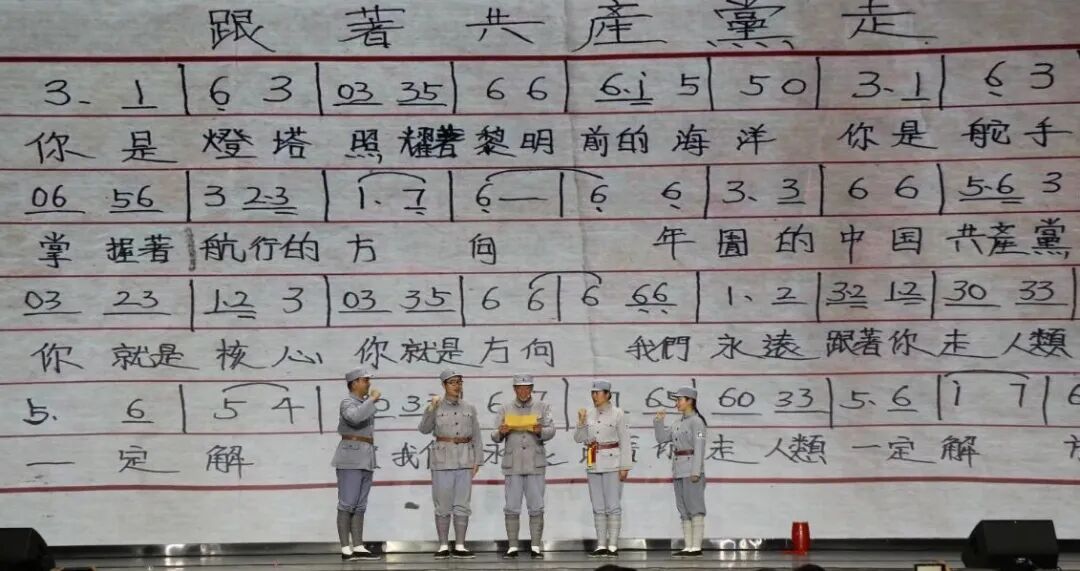 跟著共產黨走
3. 1 | 6 3 | 03 35 | 6 6 | 6.i 5 | 5 0 | 3. 1 | 6 3
你是燈塔照耀著黎明前的海洋 你是舵手
06 56 | 3 2.3 | 1. 7 | 6 — | 6 6 | 3. 3 | 6 6 | 5.6 3
掌握著航行的方向 年 的中国共產黨
03 23 | 1.2 3 | 03 35 | 6 6 | 6 66 | 1. 2 | 32 12 | 30 33
你就是核心你就是方向 我們永遠跟著你走人類
5. 6 | 5 4 | 65 | 60 33 | 5. 6 | 1 7 | 6
一定解 我 你走人類一定解